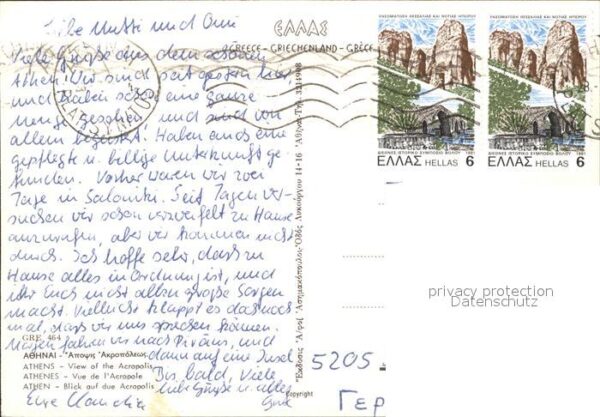 Liebe Mutti und Omi
Viele Grüße aus dem schönen
Athen. Wir sind seit gestern hier
und haben schon eine ganze
Menge gesehen, und sind von
allem begeistert. Haben auch eine
gepflegte u. billige Unterkunft ge-
funden. Vorher waren wir zwei
Tage in Saloniki. Seit Tagen ver-
suchen wir schon verzweifelt zu Hause
anzurufen, aber wir kommen nicht
durch. Ich hoffe sehr, dass zu
Hause alles in Ordnung ist, und
ihr Euch nicht allzu große Sorgen
macht. Vielleicht klappt es doch noch
mal, dass wir uns sprechen können.
Morgen fahren wir nach Piräus, und
dann auf eine Insel
Bis bald, Viele
liebe Grüße u. alles
Gute
Eure Claudia
GRE 464
ΑΘΗΝΑΙ - Ἄποψις Ἀκροπόλεως
ATHENS - View of the Acropole
ATHENES - Vue de l'Acropole
ATHEN - Blick auf due Acropolis
ΕΛΛΑΣ
GREECE - GRIECHENLAND - GRÈCE
14-16
Copyright
ΠΝΕΥΜΑΤΙΚΗ ΘΕΣΣΑΛΙΑΣ ΚΑΙ ΝΟΤΙΑΣ ΗΠΕΙΡΟΥ
ΔΙΕΘΝΕΣ ΙΣΤΟΡΙΚΟ ΣΥΜΠΟΣΙΟ ΒΟΛΟΥ 1981
ΕΛΛΑΣ HELLAS 6
ΕΛΛΑΣ HELLAS 6
privacy protection
Datenschutz
5205
ΓΕΡ